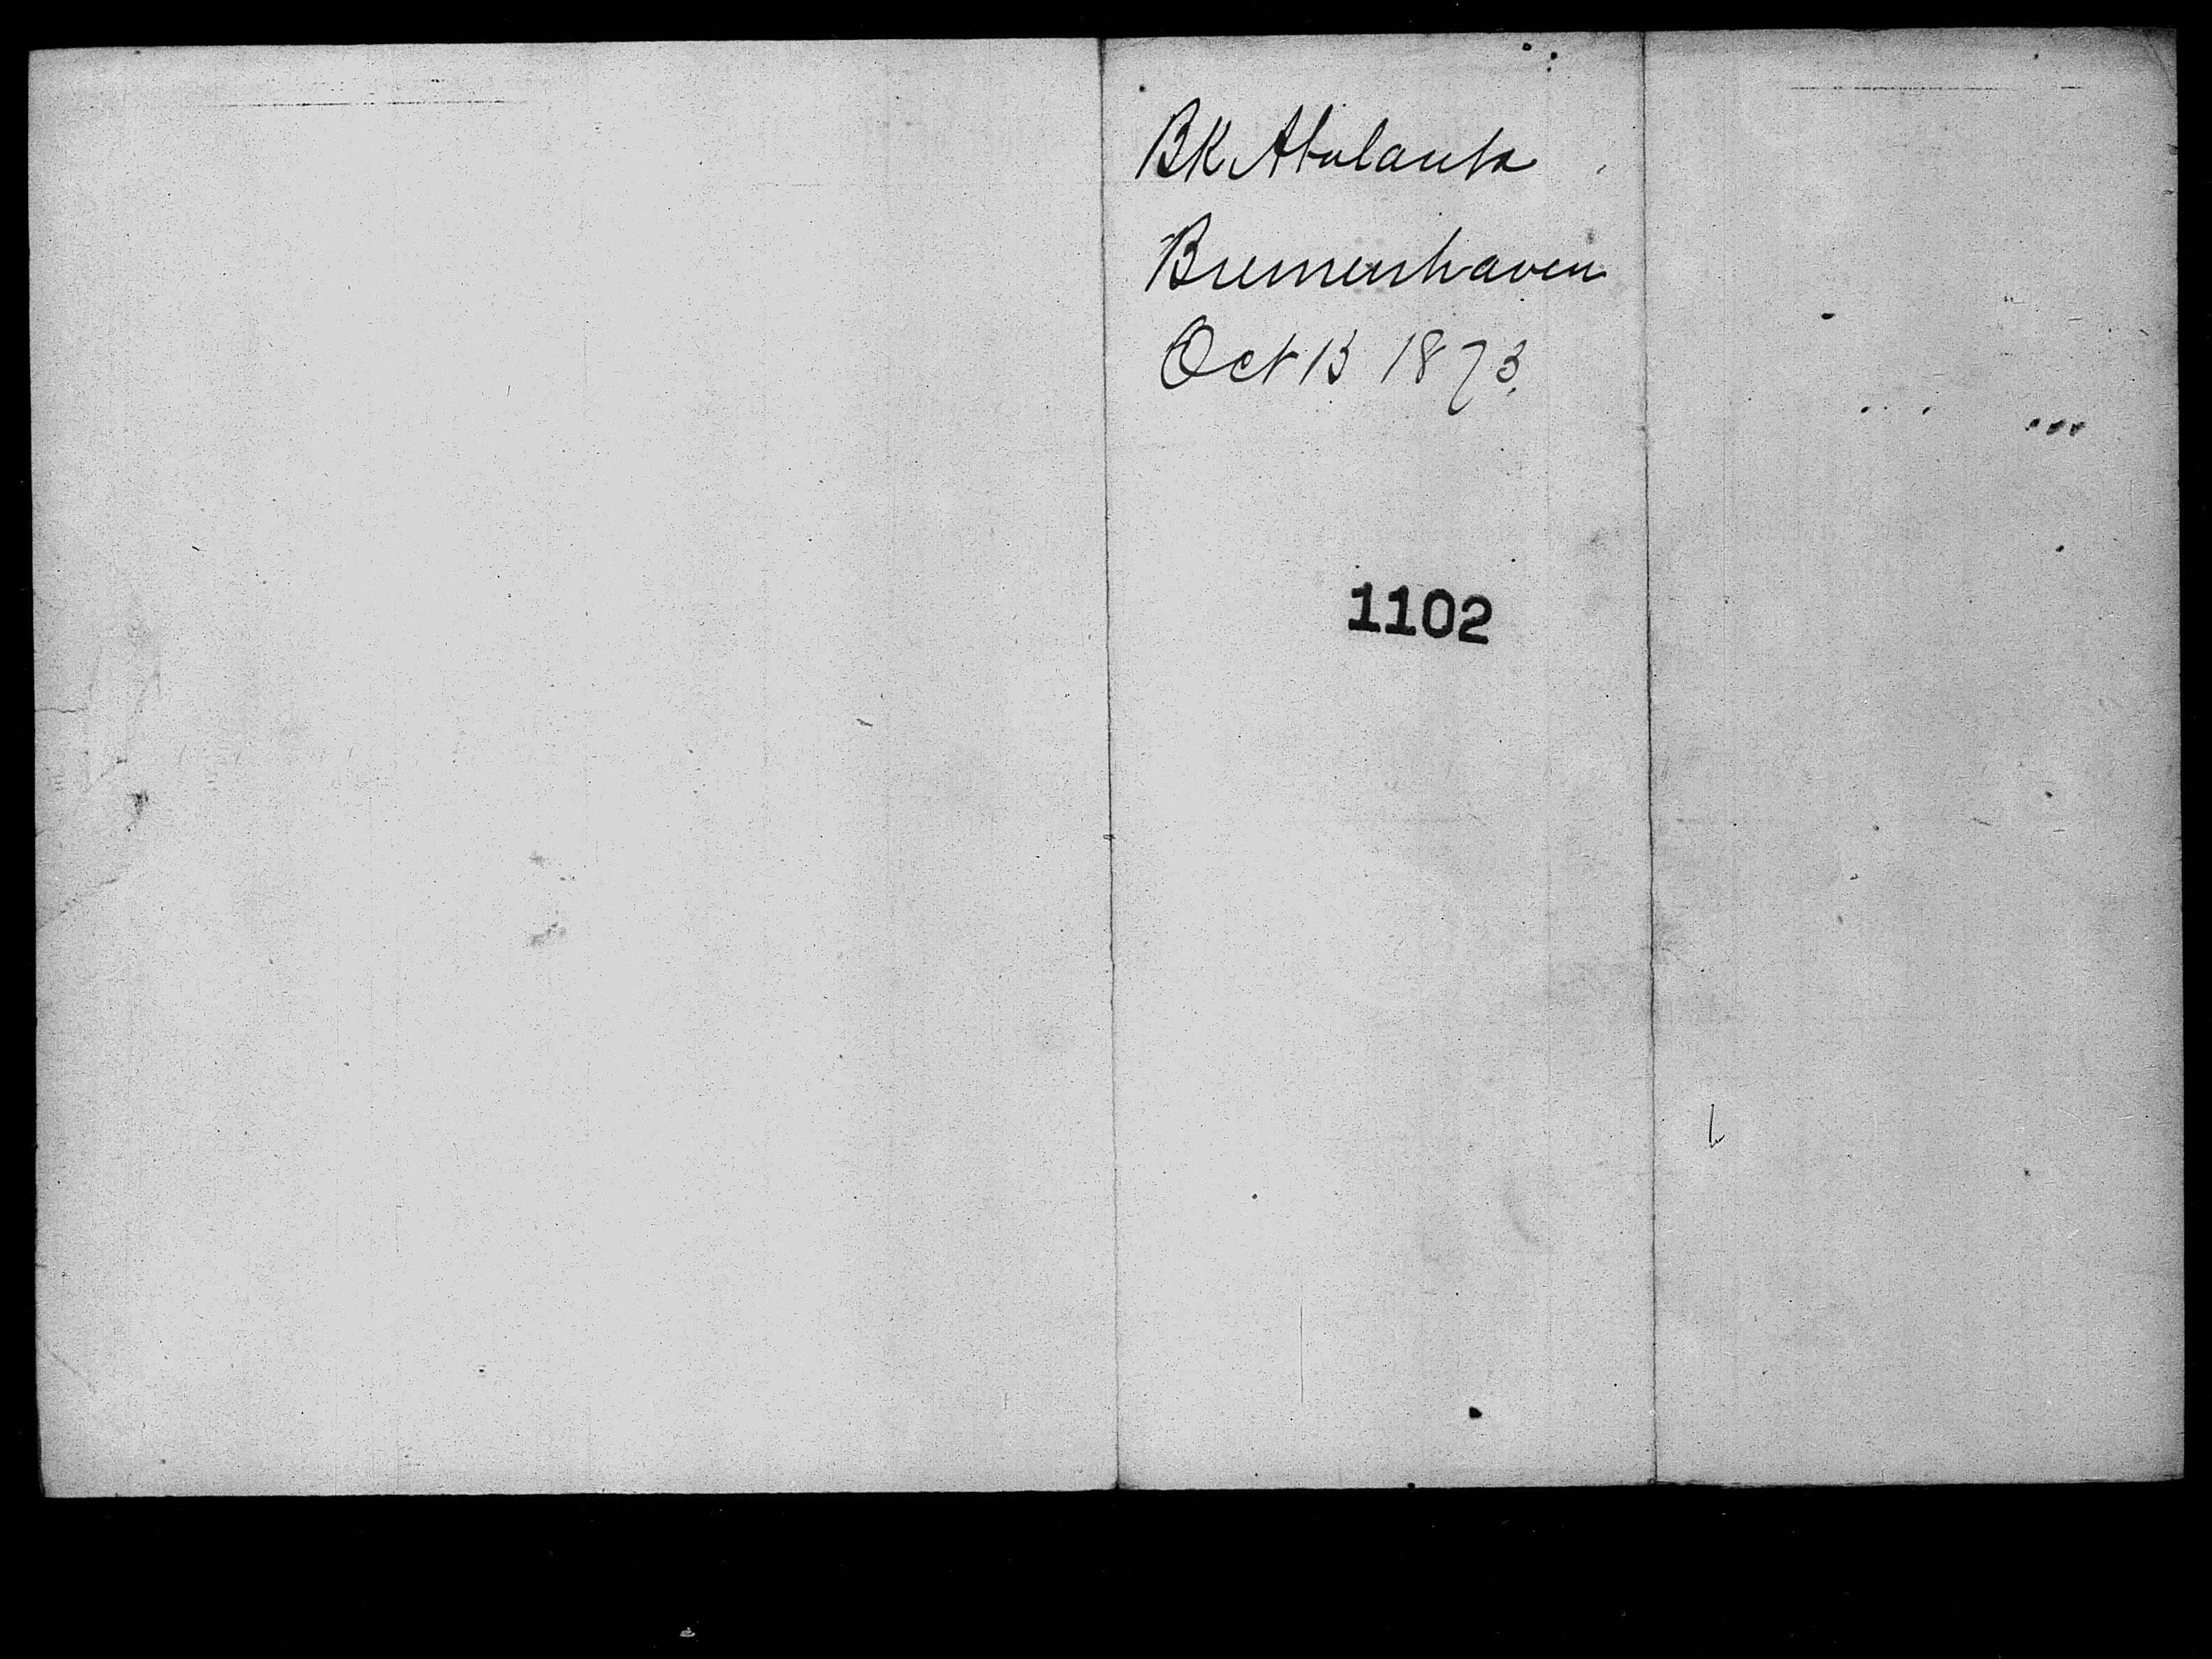 BK Atalanta
Bremenhaven
Oct 15 1873.
1102